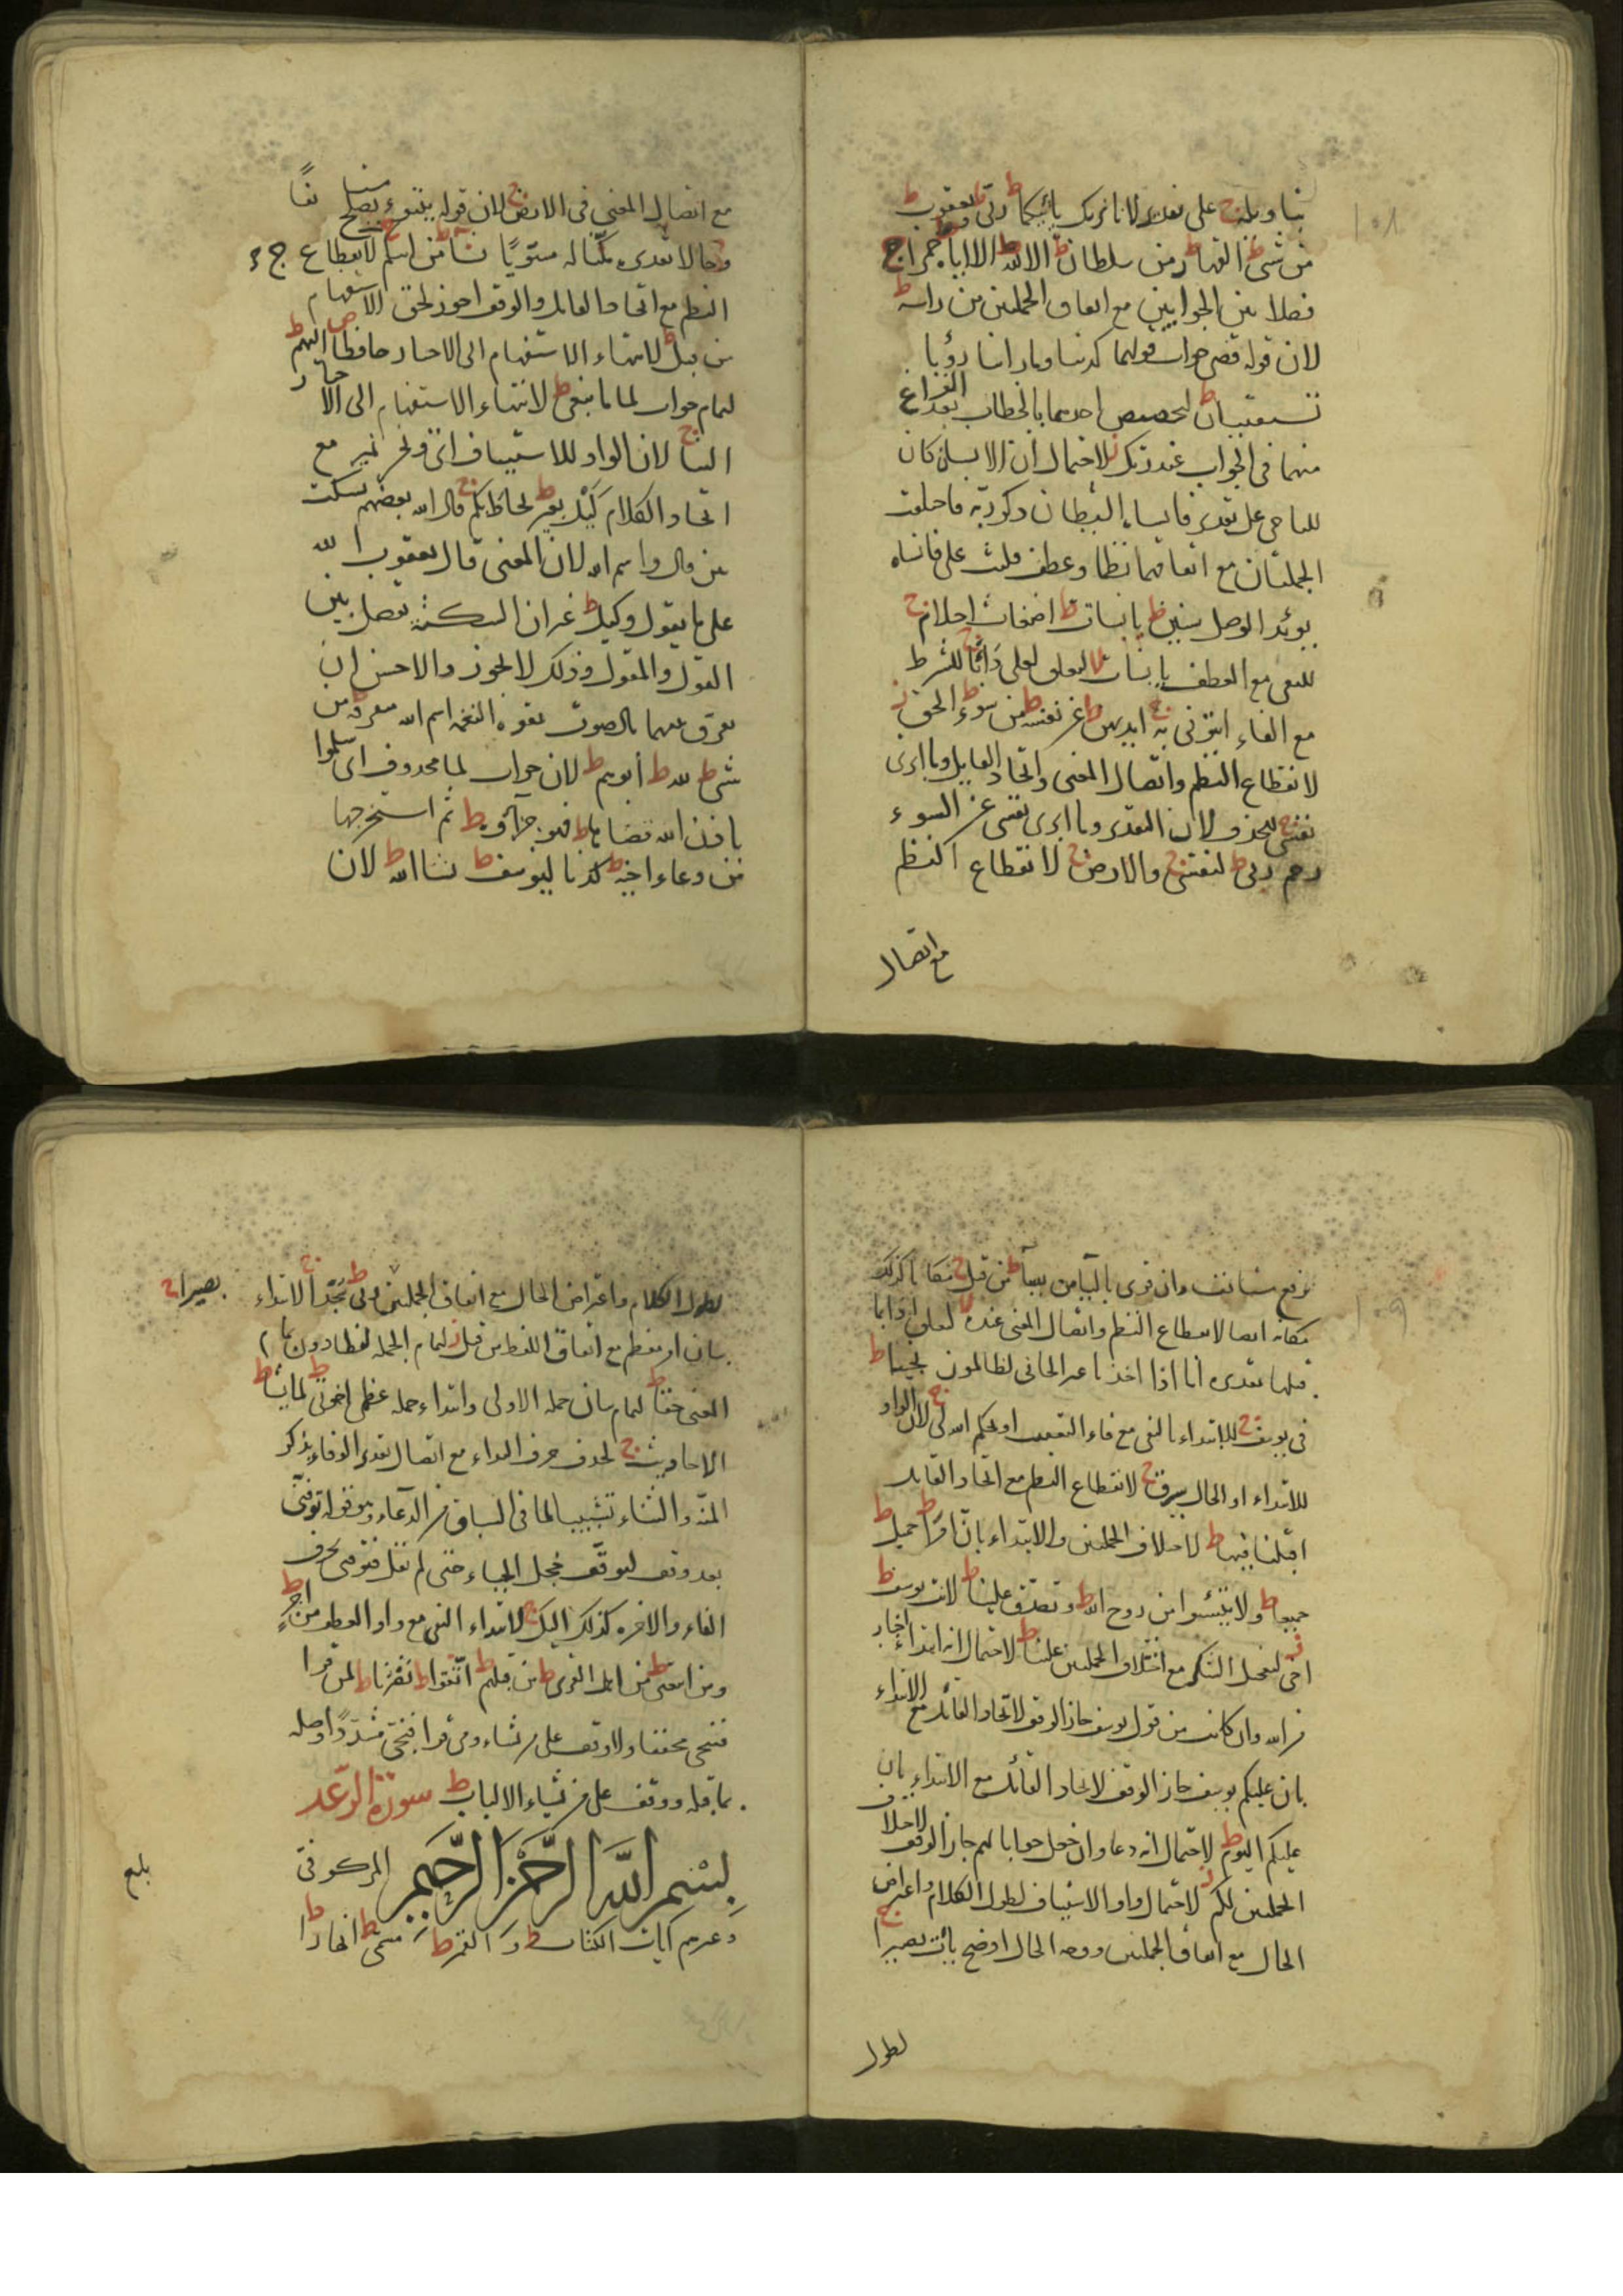 ١٠٨
بتاويله ج على تقدير لانا نريك يأتيكما ط ربى ط ويعقوب ط
من شئ ط القهار ط من سلطان ط الا لله ط الا اياه ط خمرا ج
فصلا بين الجوابين مع اتفاق الجملتين من راسه ط
لان قوله قضى جواب قولهما كذبنا وما راينا رؤيا
تستفتيان ط لتخصيص احدهما بالخطاب بعد الفراغ
منهما فى الجواب عند ربك ز لاحتمال ان الانساء كان
للناجى على تقدير فانساه الشيطان ذكر ربه فاختلفت
الجملتان مع اتفاقهما نظما وعطف فلبث على فانساه
يؤيد الوصل سنين ط يابسات ط اضغاث احلام ج
للنفى مع العطف يابسات لا لتعلق لعلى دأبا ج للشرط
مع الفاء ائتونى به ج ايديهن ط عن نفسه ط من سوء ط الحق ز
لانقطاع النظم واتصال المعنى واتحاد القايل وما ابرئ
نفسى ج للحذف لان التقدير وما ابرئ نفسى عن السوء
رحم ربى ط لنفسى ج والارض ج لانقطاع النظم
مع اتصال
مع اتصال المعنى فى الارض ج لان قوله يتبوء يصلح مستانفا
وحالا تقديره مكنا له متبويا
النظم مع اتحاد القايل والوقف اجوز لحق الاستفهام
من قبل ط لانتهاء الاستفهام الى الاخبار حافظا ص اليهم ط
لتمام جواب لما ما نبغى ط لانتهاء الاستفهام الى الاخبار
الينا ج لان الواو للاستيناف اى ونحن نمير مع
اتحاد الكلام كيل بعير ط يحاط بكم ج قال الله بعضهم يسكت
بين قال واسم الله لان المعنى قال يعقوب الله
على ما نقول وكيل ط غير ان السكتة تفصل بين
القول والمقول وذلك لا يجوز والاحسن ان
يفرق بينهما بالصوت بقوة النغمة اسم الله متفرقة ط من
شئ ط لله ط أبوهم ط لان جواب لما محذوف اى سلموا
باذن الله قضاها ط فهو جزآؤه ط ثم استخرجها
من وعاء اخيه ط كدنا ليوسف ط يشاء الله ط لان
١٠٩
نرفع مستانف وان قرى بالياء من يشاء ط من قبل ج مكانا ج كذلك
مكانه ج ايضا لانقطاع النظم واتصال المعنى عنده لا لتعلق اذا بما
قبلها تقديره انا اذا اخذنا غير الجانى لظالمون نجيا ط
فى يوسف ج للابتداء بالنفى مع فاء التعقيب او يحكم الله لى ج لان الواو
للابتداء او الحال سرق ج لانقطاع النظم مع اتحاد القايل
اقبلنا فيها ط لاختلاف الجملتين والابتداء بان امرا ط جميل ط
جميعا ط ولا تيئسوا من روح الله ط وتصدق علينا ط لانت يوسف ط
اخى ز لتعجيل الشكر مع اختلاف الجملتين علينا ط لاحتمال انه ابتداء اخبار
من الله وان كانت من قول يوسف جاز الوقف لاتحاد القائل مع الابتداء
بان عليكم يوسف جاز الوقف لاتحاد القائل مع الابتداء بان
عليكم اليوم ط لاحتمال انه دعا وان جعل جوابا لهم جاز الوقف لاختلاف
الجملتين لكم ز لاحتمال واو الاستيناف لطول الكلام واعتراض
الحال مع اتفاق الجملتين ووجه الحال اوضح يأت بصيرا ج
لطول
لطول الكلام واعتراض الحال مع اتفاق الجملتين ربى ط سجدا ج لابتداء
بصيرا ج
بيان امر معظم مع اتفاق اللفظ من قبل ز لتمام الجملة لفظا دون
المعنى حقا ط لتمام بيان جملة الاولى وابتداء جملة عظمى اخوتى ط لما يشاء ط
الاحاديث ج لحذف حرف النداء مع اتصال تقدير الوفاء بذكر
المنة والثناء تشبيبا لما فى السياق من الدعاء وهو قوله توفنى
بعد وقف لتوقف خجل الحياء حتى لم تقل فتوفنى بحرف
الفاء والاخرة كذلك اليك ج لابتداء النفى مع واو العطف من اجر ط
ومن اتبعنى ط من اهل القرى ط من قبلهم ط اتقوا ط نصرنا ط لمن قرا
فننجى مخففا ولا وقف على من نشاء ومن قرا فنجى مشددا وصله
بما قبله ووقف على من نشاء الالباب ط سورة الرعد
بسم الله الرحمن الرحيم المر كوفى
وغيرهم آيات الكتاب ط والقمر ط مسمى ط انهارا ط
بلغ